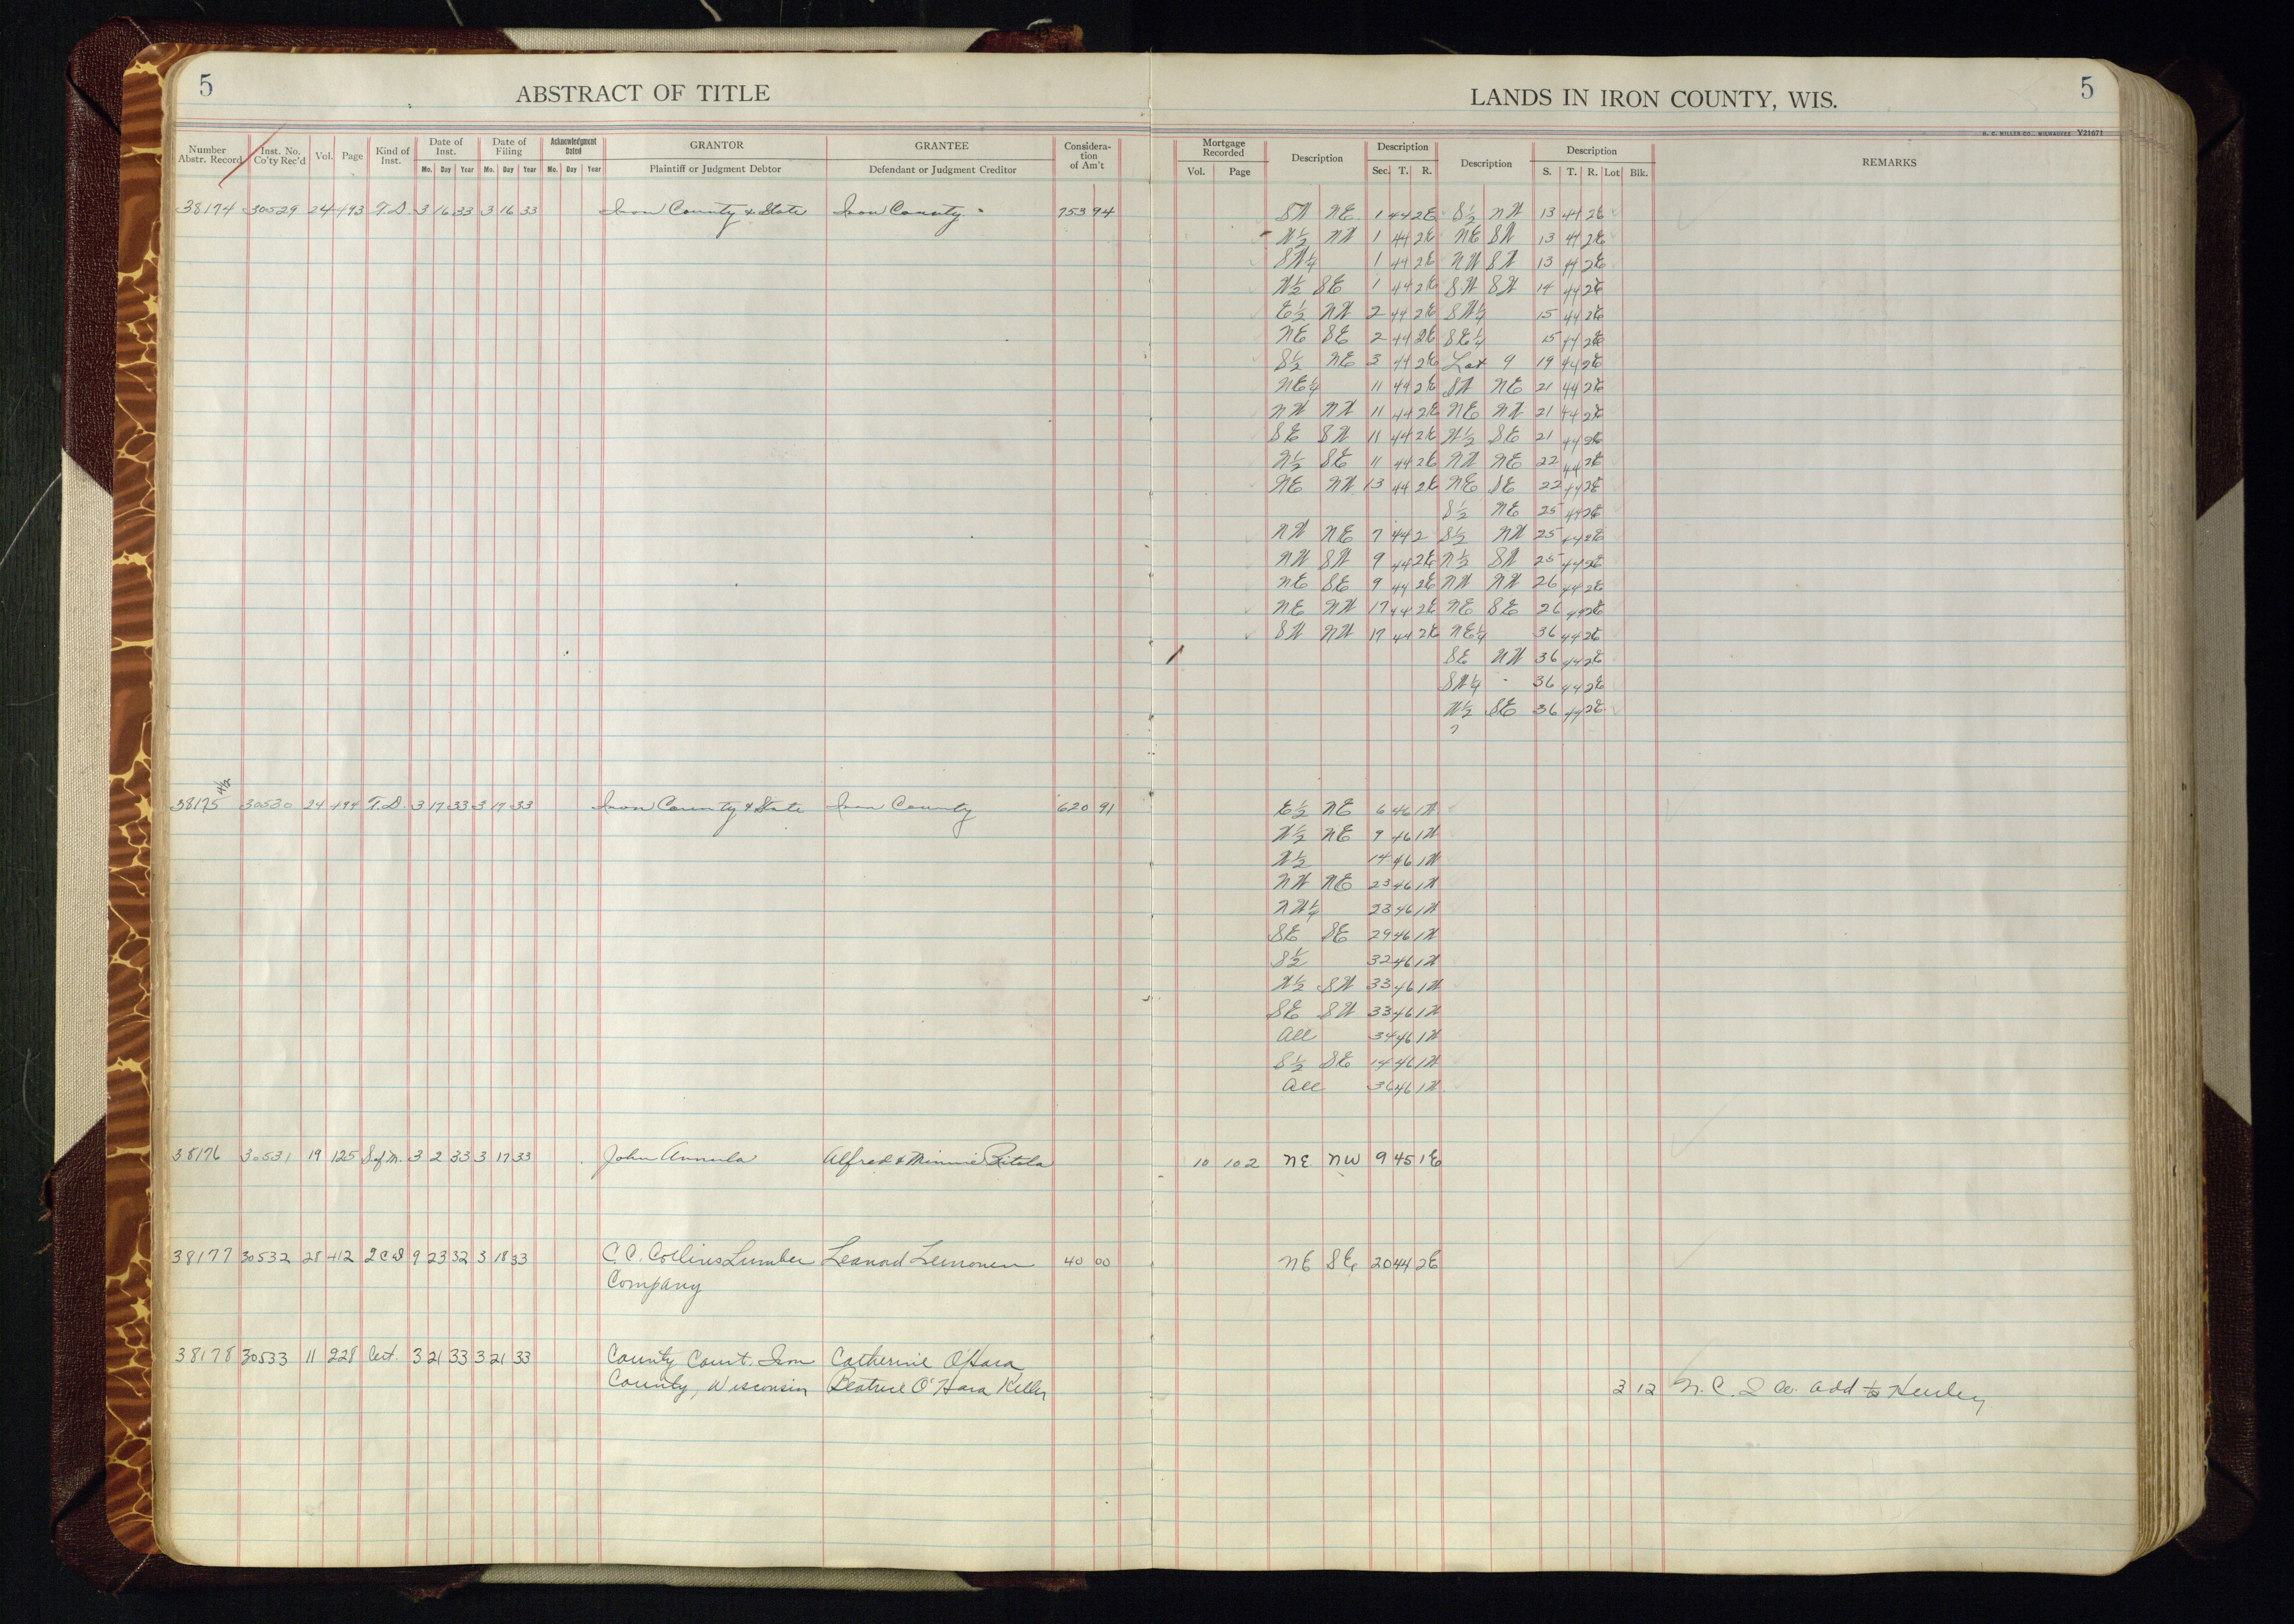 5
ABSTRACT OF TITLE
LANDS IN IRON COUNTY, WIS.
5
H. C. MILLER CO., MILWAUKEE V21671
Number Abstr. Record | Inst. No. Co'ty Rec'd | Vol. | Page | Kind of Inst. | Date of Inst. Mo. Day Year | Date of Filing Mo. Day Year | Acknowledgment Dated Mo. Day Year | GRANTOR Plaintiff or Judgment Debtor | GRANTEE Defendant or Judgment Creditor | Consideration of Am't | Mortgage Recorded Vol. Page | Description | Description Sec. T. R. | Description | Description S. T. R. Lot Blk. | REMARKS
38174 30529 24 493 T.D. 3 16 33 3 16 33 Iron County & State Iron County 753 94 SW NE 1 44 2E S½ NW 13 44 2E
W½ NW 1 44 2E NE SW 13 44 2E
SW¼ 1 44 2E NW SW 13 44 2E
W½ SE 1 44 2E SW SW 14 44 2E
E½ NW 2 44 2E SW¼ 15 44 2E
NE SE 2 44 2E SE¼ 15 44 2E
S½ NE 3 44 2E Lot 9 19 44 2E
NE¼ 11 44 2E SW NE 21 44 2E
NW NW 11 44 2E NE NW 21 44 2E
SE SW 11 44 2E W½ SE 21 44 2E
N½ SE 11 44 2E NW NE 22 44 2E
NE NW 13 44 2E NE SE 22 44 2E
S½ NE 25 44 2E
NW NE 7 44 2 S½ NW 25 44 2E
NW SW 9 44 2E N½ SW 25 44 2E
NE SE 9 44 2E NW NW 26 44 2E
NE NW 17 44 2E NE SE 26 44 2E
SW NW 17 44 2E NE¼ 36 44 2E
SE NW 36 44 2E
SW¼ 36 44 2E
W½ SE 36 44 2E
38175 30530 24 494 T.D. 3 17 33 3 17 33 Iron County & State Iron County 620 91 E½ NE 6 46 1W
W½ NE 9 46 1W
W½ 14 46 1W
NW NE 23 46 1W
NW¼ 23 46 1W
SE SE 29 46 1W
S½ 32 46 1W
W½ SW 33 46 1W
SE SW 33 46 1W
All 34 46 1W
S½ SE 14 46 1W
All 36 46 1W
38176 30531 19 125 S of M. 3 2 33 3 17 33 John Annula Alfred & Minnie Ritola 10 102 NE NW 9 45 1E
38177 30532 28 412 2 C D 9 23 32 3 18 33 C.C. Collins Lumber Leonard 40 00 NE SE 20 44 2E
Company
38178 30533 11 228 Cert. 3 21 33 3 21 33 County Court. Iron Catherine O'Hara
County, Wisconsin Beatrice O'Hara Kelly 3 12 add to Hurley